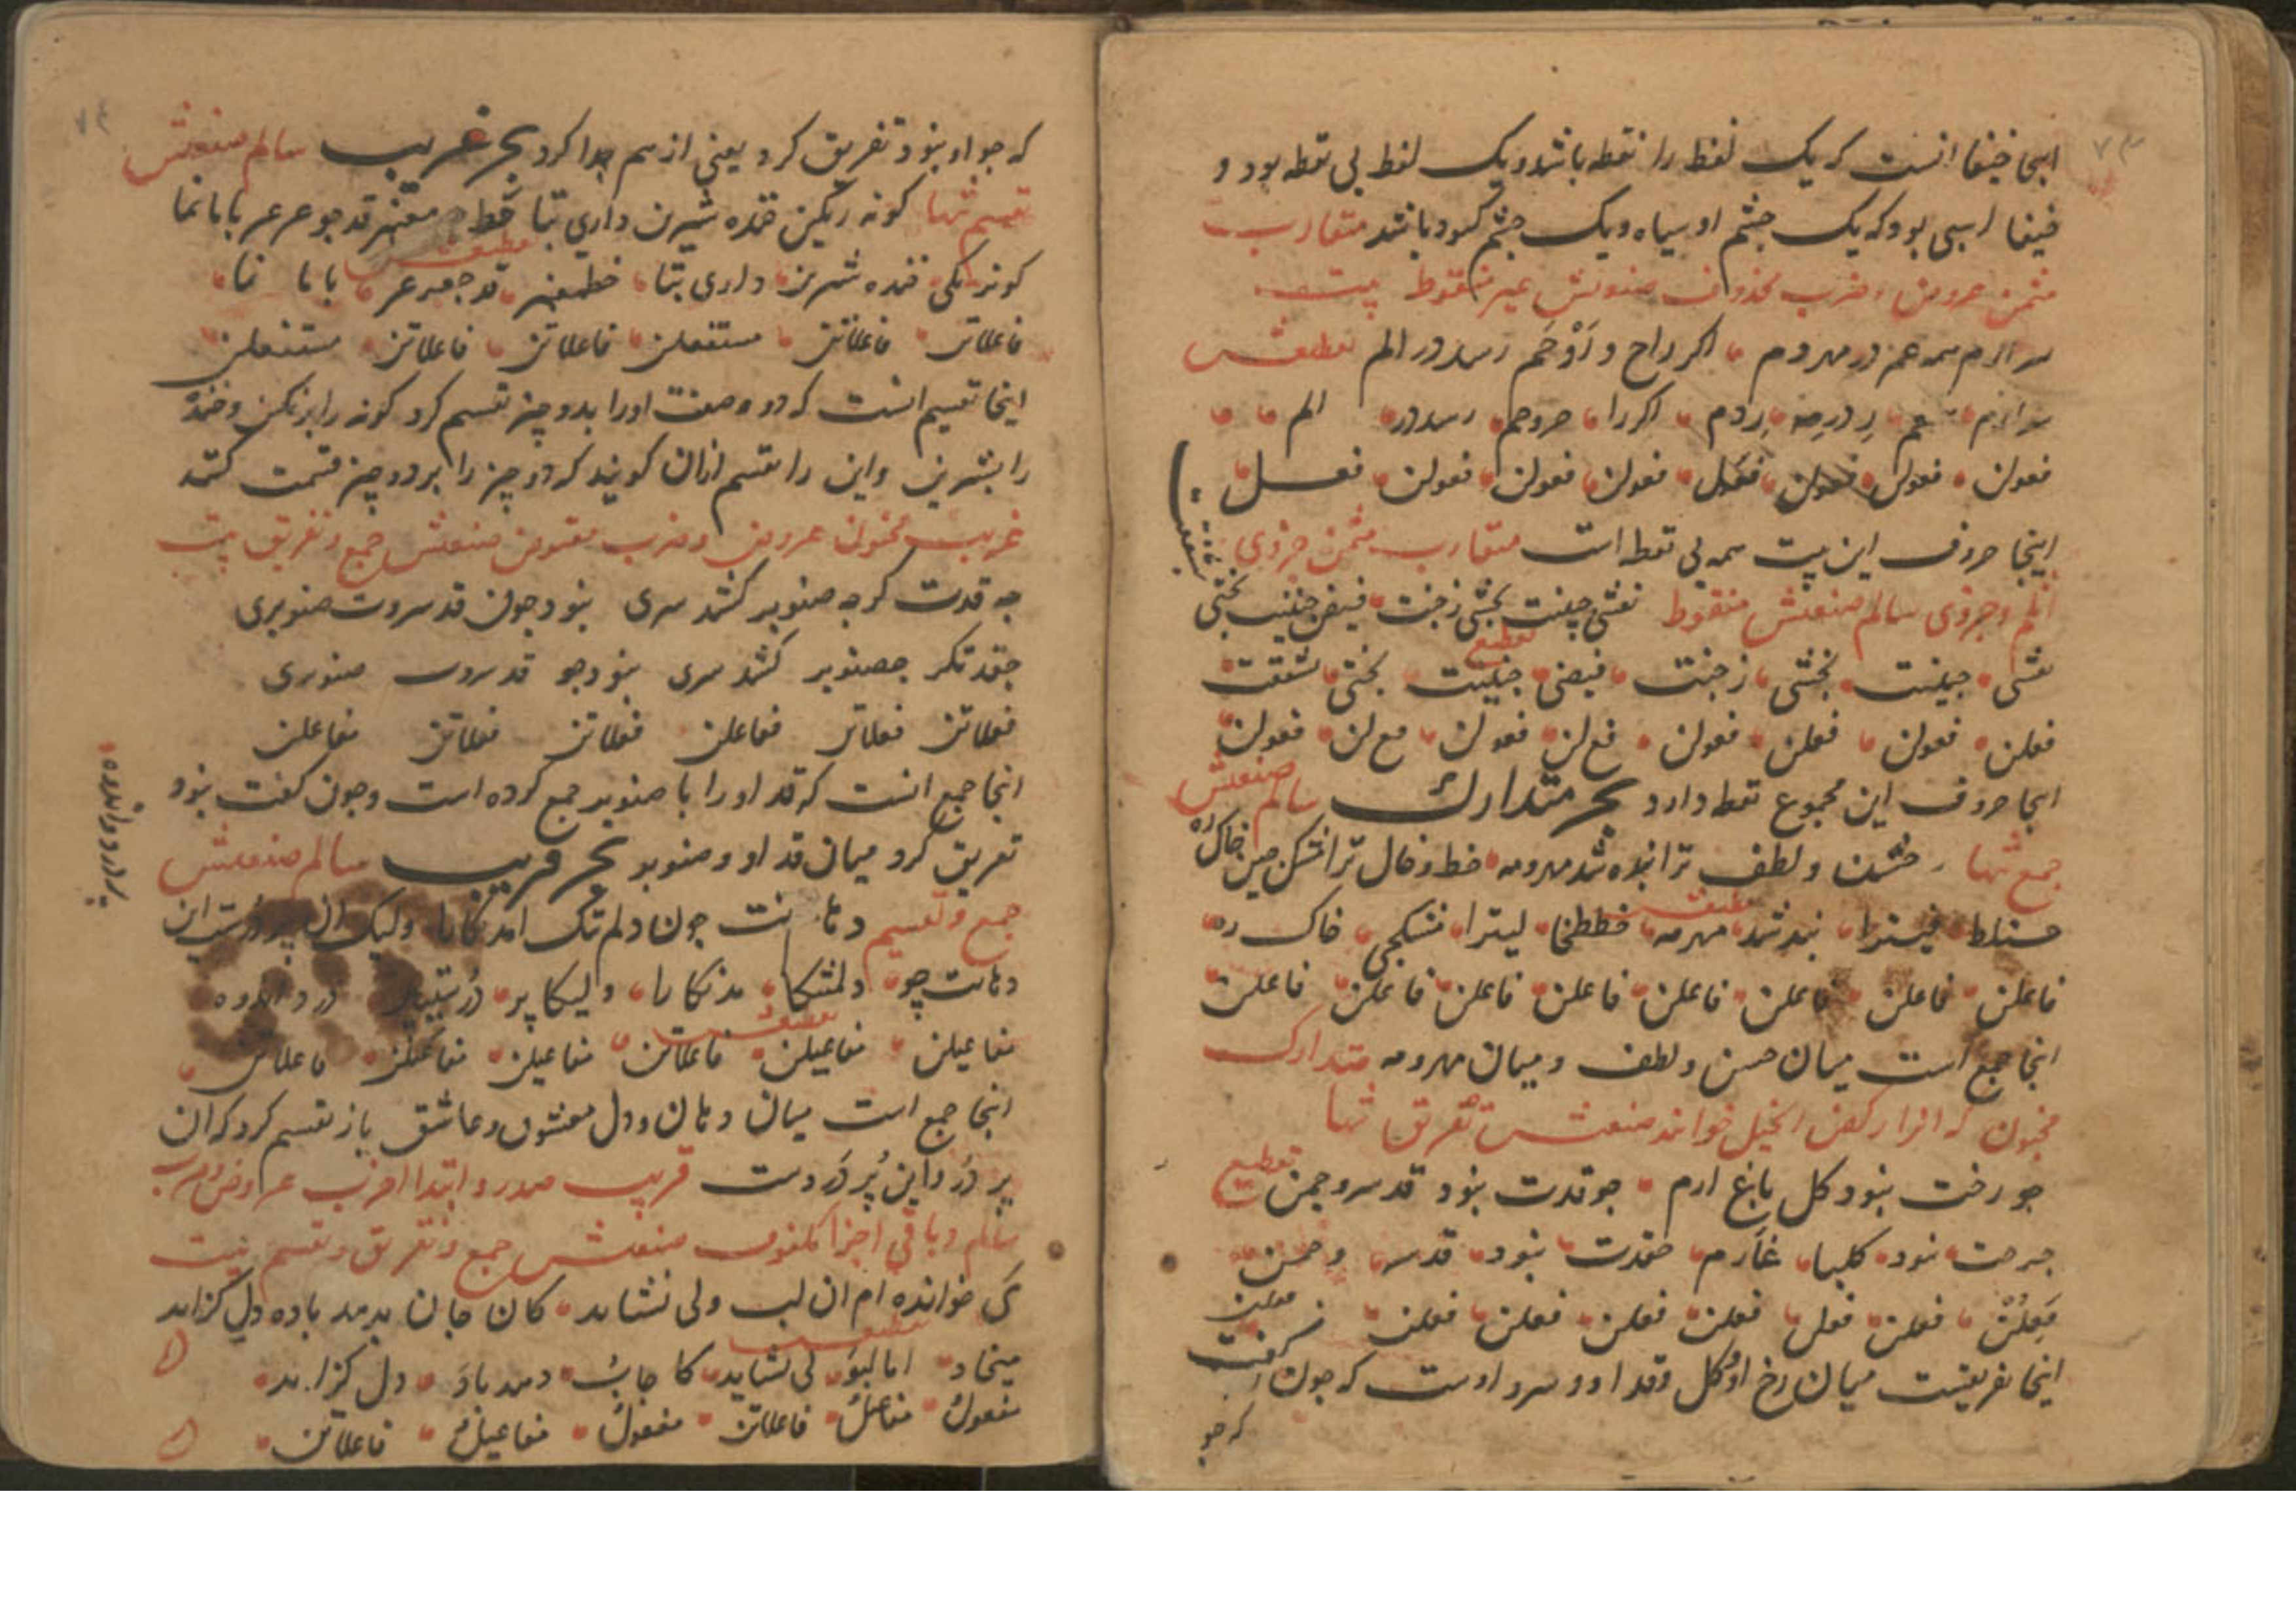 اینجا خیفا انست که یک لفظ را نقطه باشد و یک لفظ بی نقطه بود و
خیفا اسبی بود که یک چشم او سیاه و یک چشم کبود باشد متقارب
مثمن عروض و ضرب محذوف صنعتش غیر منقوط بیت
همه در مهر دوم اکر راح و رَوْحَم رسد در الم تقطیعش
اکر را حروحم رسددر الم
فعولن فعولن فعولن فعول فعولن فعولن فعولن فعل
اینجا حروف این بیت همه بی نقطه است متقارب مثمن جزوی
اثلم و جزوی سالم صنعتش منقوط
تقطیع
بخشی زجنت فیضی جبینت بختی
فعلن فعولن فعلن فعولن فع لن فعولن فع لن فعولن
اینجا حروف این مجموع نقطه دارد بحر متدارک سالم صنعتش
جمع تنها حسن و لطف ترا بنده شد مهر و مه خط و خال ترا مشک چین خاک ره
تقطیعش
حسنلط فیترا بندشد مهرمه خططخا لیترا مشکچی خاک ره
فاعلن فاعلن فاعلن فاعلن فاعلن فاعلن فاعلن فاعلن
اینجا جمع است میان حسن و لطف و میان مهر و مه متدارک
مخبون که انرا رکض الخیل خوانند صنعتش تفریق تنها
جو رخت نبود کل باغ ارم جو قدت نبود قد سرو چمن تقطیع
جرخت نبود کلبا غارم جقدت نبود قدسر وچمن
فَعِلُن فعلن فعلن فعلن فعلن فعلن فعلن فعلن
اینجا تفریقست میان رخ او و کل و قد او و سرو اوست که جون گفت
که جو
که جو او نبود تفریق کرد یعنی از هم جدا کرد بحر غریب سالم صنعتش
تقسیم تنها کونه رنکین خنده شیرین داری بتا خط معنبر قد جو عرعر بابا نما
تقطیعش
کونرنکی خنده شیرن داری بتا خطمعنبر قد جعرعر بابا نما
فاعلاتن فاعلاتن مستفعلن فاعلاتن فاعلاتن مستفعلن
اینجا تقسیم انست که دو صفت اورا بدو چیز تقسیم کرد کونه را برنکین و خنده
را بشیرین و این را تقسیم ازان کویند که دو چیز را بر دو چیز قسمت کنند
غریب مخبون عروض و ضرب مقبوض صنعتش جمع و تفریق بیت
جه قدت کرجه صنوبر کشد سری نبود جون قد سروت صنوبری
جقدتکر جصنوبر کشد سری نبودجو قد سروت صنوبری
فعلاتن فعلاتن مفاعلن فعلاتن فعلاتن مفاعلن
اینجا جمع انست که قد او را با صنوبر جمع کرده است و جون کفت نبود
تفریق کرد میان قد او و صنوبر بحر قریب سالم صنعتش
جمع و تقسیم دهانت جون دلم تنک امد نکارا ولیک ان پر درست این
پر درد و اندوه
دهانت چو دلمتنکا مدنکارا ولیکا پر درد و اندوه
تقطیعش
مفاعیلن مفاعیلن فاعلاتن مفاعیلن مفاعیلن فاعلاتن
اینجا جمع است میان دهان و دل معشوق و عاشق باز تقسیم کرد که ان
پر دُر و این پُر دَردست قریب صدر و ابتدا اخرب عروض و ضرب
سالم و باقی اجزا مکفوف صنعتش جمع و تفریق و تقسیم بیت
می خوانده ام ان لب ولی نشاید کان جان بدمد باده دل کزاید
تقطیعش
میخاد اما لبوَ لی نشاید کا جانبُ دمد بادَ دل کزاید
مفعولُ مفاعیلُ فاعلاتن مفعولُ مفاعیلُ فاعلاتن